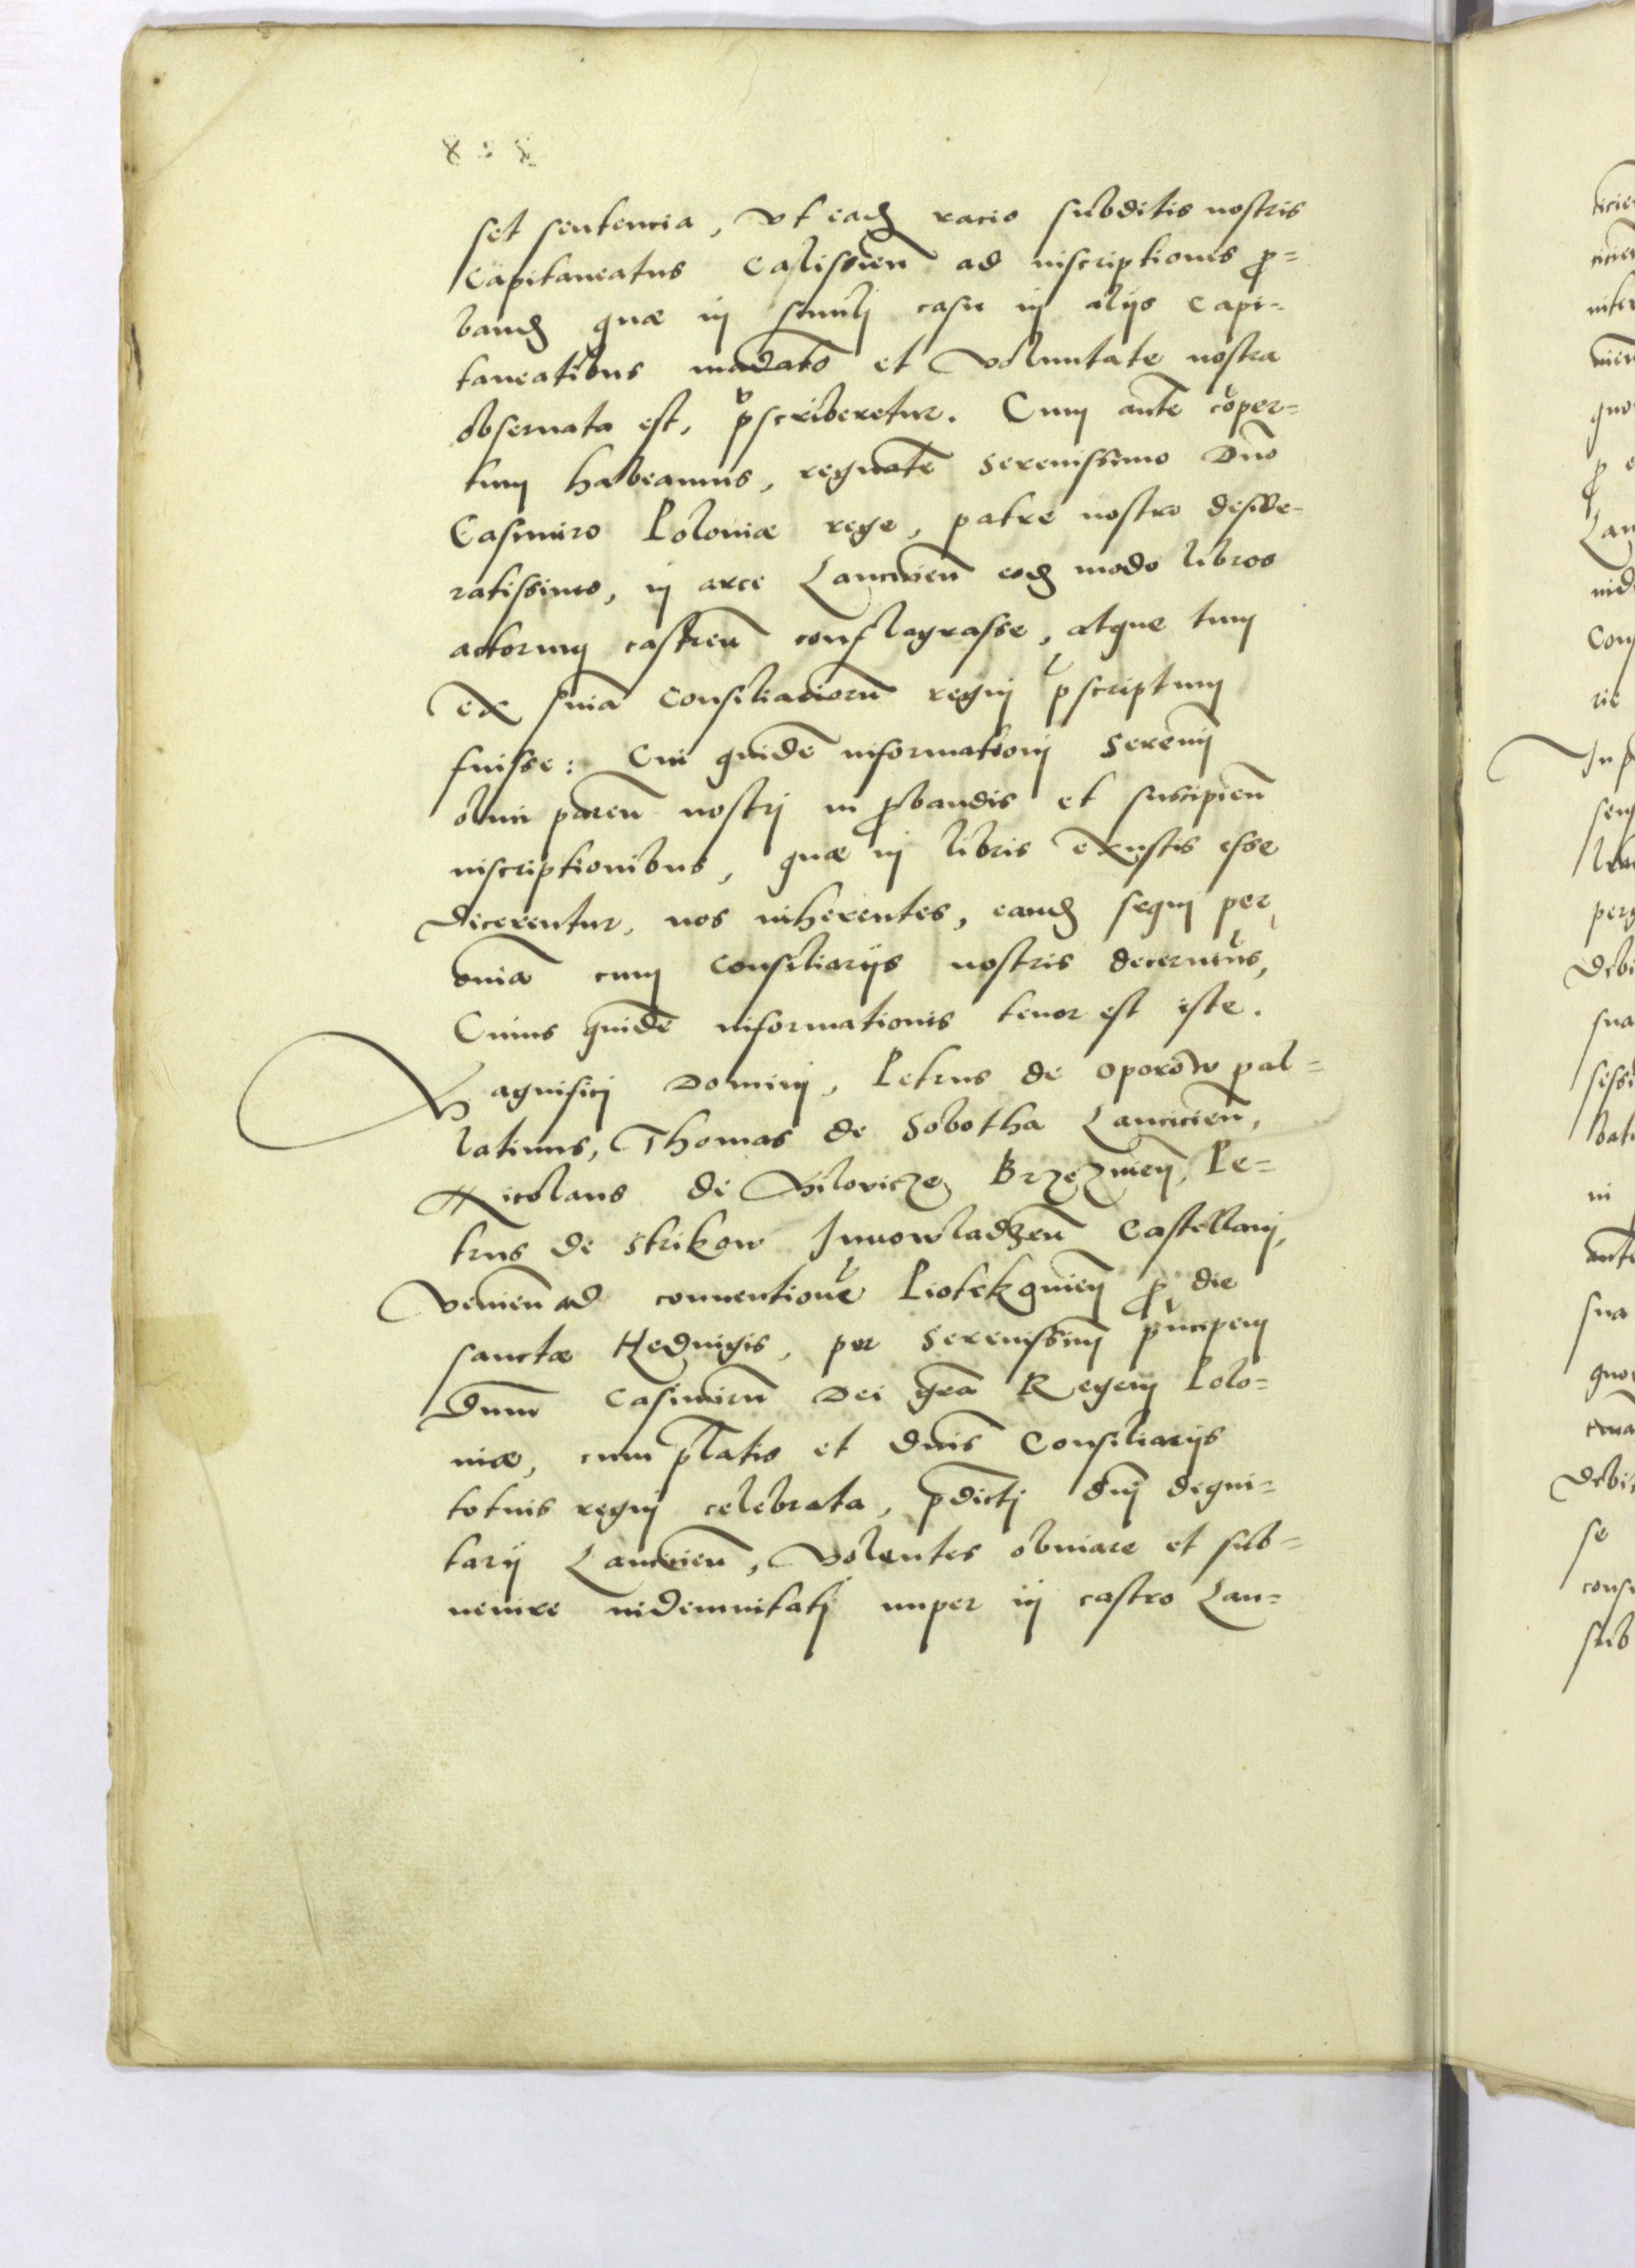 set sentencia, vt eadȝ racio subditis nostris
Capitaneatus Calissieñ ad inscriptiones ꝓ=
bandȝ quæ in simili casu in alijs Capi=
taneatibus mādato et voluntate nostra
obseruata est, p̄scriberetur. Cum ante cōper=
tum habeamus, regnāte Serenissimo Dño
Casimiro Poloniæ rege, patre nostro deside=
ratissimo, in arce Lancicieñ eodȝ modo libros
actorum castreñ conflagrasse, atque tum
ex snia Consiliariorū regni p̄scriptum
fuisse: Cui quidē informationi Serenmi
olim pareñ nostri in ꝓbandis et suscipieñ
inscriptionibus, quæ in libris exustis esse
dicerentur, nos inherentes, eandȝ sequi per
omia cum Consiliarijs nostris decernimus,
Cuius quidē informationis tenor est iste.
Magnifici Domini, Petrus de Oporow pal=
latinus, Thomas de Sobotha Lancicieñ,
Nicolaus de Vilovicze Brzezinieñ, Pe=
trus de Strikow Junowladzeñ Castellani,
venieñ ad conuentionē Piotrkquieñ ꝓ die
sanctæ Heduigis, per Serenissimū p̄ncipem
Dnum Casimirū Dei grā Regem Polo=
niæ, cum p̄latis et dnis Consiliarijs
totius regni celebrata, p̄dicti dni digni=
tarij Lancicieñ, volentes obuiare et sub=
uenire indemnitati nuper in castro Lan=